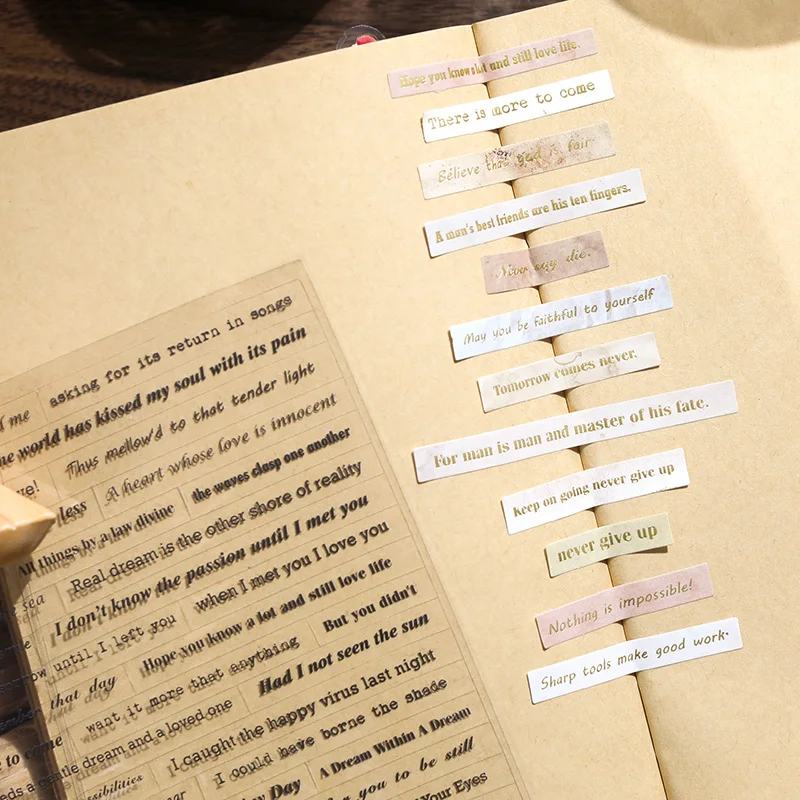 Hope you know a lot and still love life.
There is more to come
Believe that God is fair
A man's best friends are his ten fingers.
Never say die.
May you be faithful to yourself
Tomorrow comes never.
For man is man and master of his fate.
Keep on going never give up
never give up
Nothing is impossible!
Sharp tools make good work.
asking for its return in songs
d me
world has kissed my soul with its pain
Thus mellow'd to that tender light
ue!
less A heart whose love is innocent
the waves clasp one another
All things by a law divine
Real dream is the other shore of reality
sea I don't know the passion until I met you
row until I left you when I met you I love you
that day Hope you know a lot and still love life
But you didn't
want it more that anything
Had I not seen the sun
to come
a gentle dream and a loved one
I caught the happy virus last night
ssibilities I could have borne the shade
Day A Dream Within A Dream
you to be still
Your Eyes